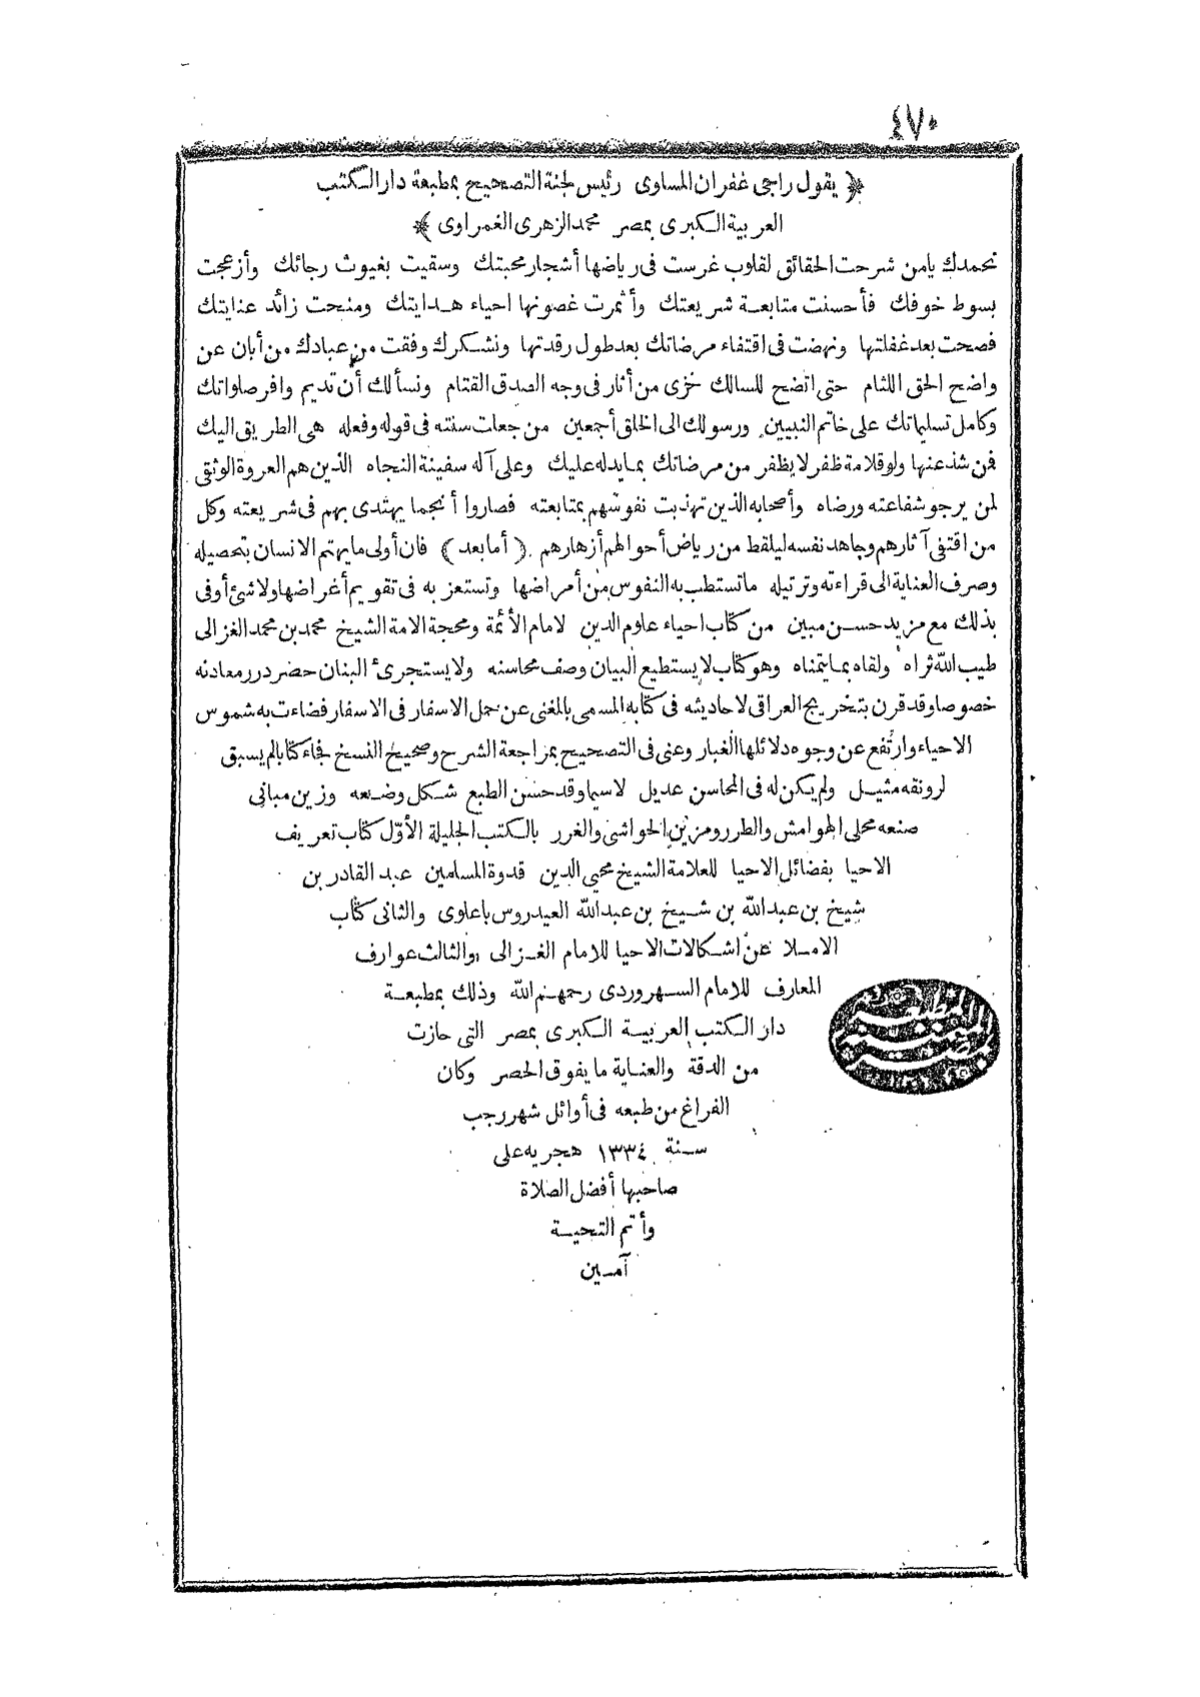 ٤٧٠
﴿ يقول راجى غفران المساوى رئيس لجنة التصحيح بمطبعة دار الكتب
العربية الكبرى بمصر محمد الزهرى الغمراوى ﴾
نحمدك يا من شرحت الحقائق لقلوب غرست فى رياضها أشجار محبتك وسقيت بغيوث رجائك وأزعجت
بسوط خوفك فأحسنت متابعة شريعتك وأثمرت غصونها احياء هدايتك ومنحت زائد عنايتك
فصحت بعد غفلتها ونهضت فى اقتفاء مرضاتك بعد طول رقدتها ونشكرك وفقت من عبادك من أبان عن
واضح الحق اللثام حتى اتضح للسالك خزى من أثار فى وجه الصدق القتام ونسألك أن تديم وافر صلواتك
وكامل تسليماتك على خاتم النبيين ورسولك الى الخلق أجمعين من جعلت سنته فى قوله وفعله هى الطريق اليك
فمن شذ عنها ولو قلامة ظفر لا يظفر من مرضاتك بما يدله عليك وعلى آله سفينة النجاه الذين هم العروة الوثقى
لمن يرجو شفاعته ورضاه وأصحابه الذين تهذبت نفوسهم بمتابعته فصاروا أنجما يهتدى بهم فى شريعته وكل
من اقتفى آثارهم وجاهد نفسه ليلقط من رياض أحوالهم أزهارهم ( أما بعد ) فان أولى ما يهتم الانسان بتحصيله
وصرف العناية الى قراءته وترتيله ما تستطب به النفوس من أمراضها وتستعز به فى تقويم أغراضها ولا شئ أوفى
بذلك مع مزيد حسن مبين من كتاب احياء علوم الدين لامام الأئمة ومحجة الامة الشيخ محمد بن محمد الغزالى
طيب الله ثراه ولقاه بما يتمناه وهو كتاب لا يستطيع البيان وصف محاسنه ولا يستجرئ البنان حضر درر معادنه
خصوصا وقد قرن بتخريج العراقى لاحاديثه فى كتابه المسمى بالمغنى عن حمل الاسفار فى الاسفار فضاءت به شموس
الاحياء وارتفع عن وجوه دلائلها الغبار وعنى فى التصحيح بمراجعة الشرح وصحيح النسخ فجاء كتابا لم يسبق
لرونقه مثيل ولم يكن له فى المحاسن عديل لاسيما وقد حسن الطبع شكل وضعه وزين مبانى
صنعه محلى الهوامش والطرر ومزين الحواشى والغرر بالكتب الجليلة الأوّل كتاب تعريف
الاحيا بفضائل الاحيا للعلامة الشيخ محيى الدين قدوة المسلمين عبد القادر بن
شيخ بن عبد الله بن شيخ بن عبد الله العيدروس باعلوى والثانى كتاب
الاملا عن اشكالات الاحيا للامام الغزالى والثالث عوارف
المعارف للامام السهروردى رحمهم الله وذلك بمطبعة
دار الكتب العربية الكبرى بمصر التى حازت
من الدقة والعناية ما يفوق الحصر وكان
الفراغ من طبعه فى أوائل شهر رجب
سنة ١٣٣٤ هجريه على
صاحبها أفضل الصلاة
وأتم التحية
آمين